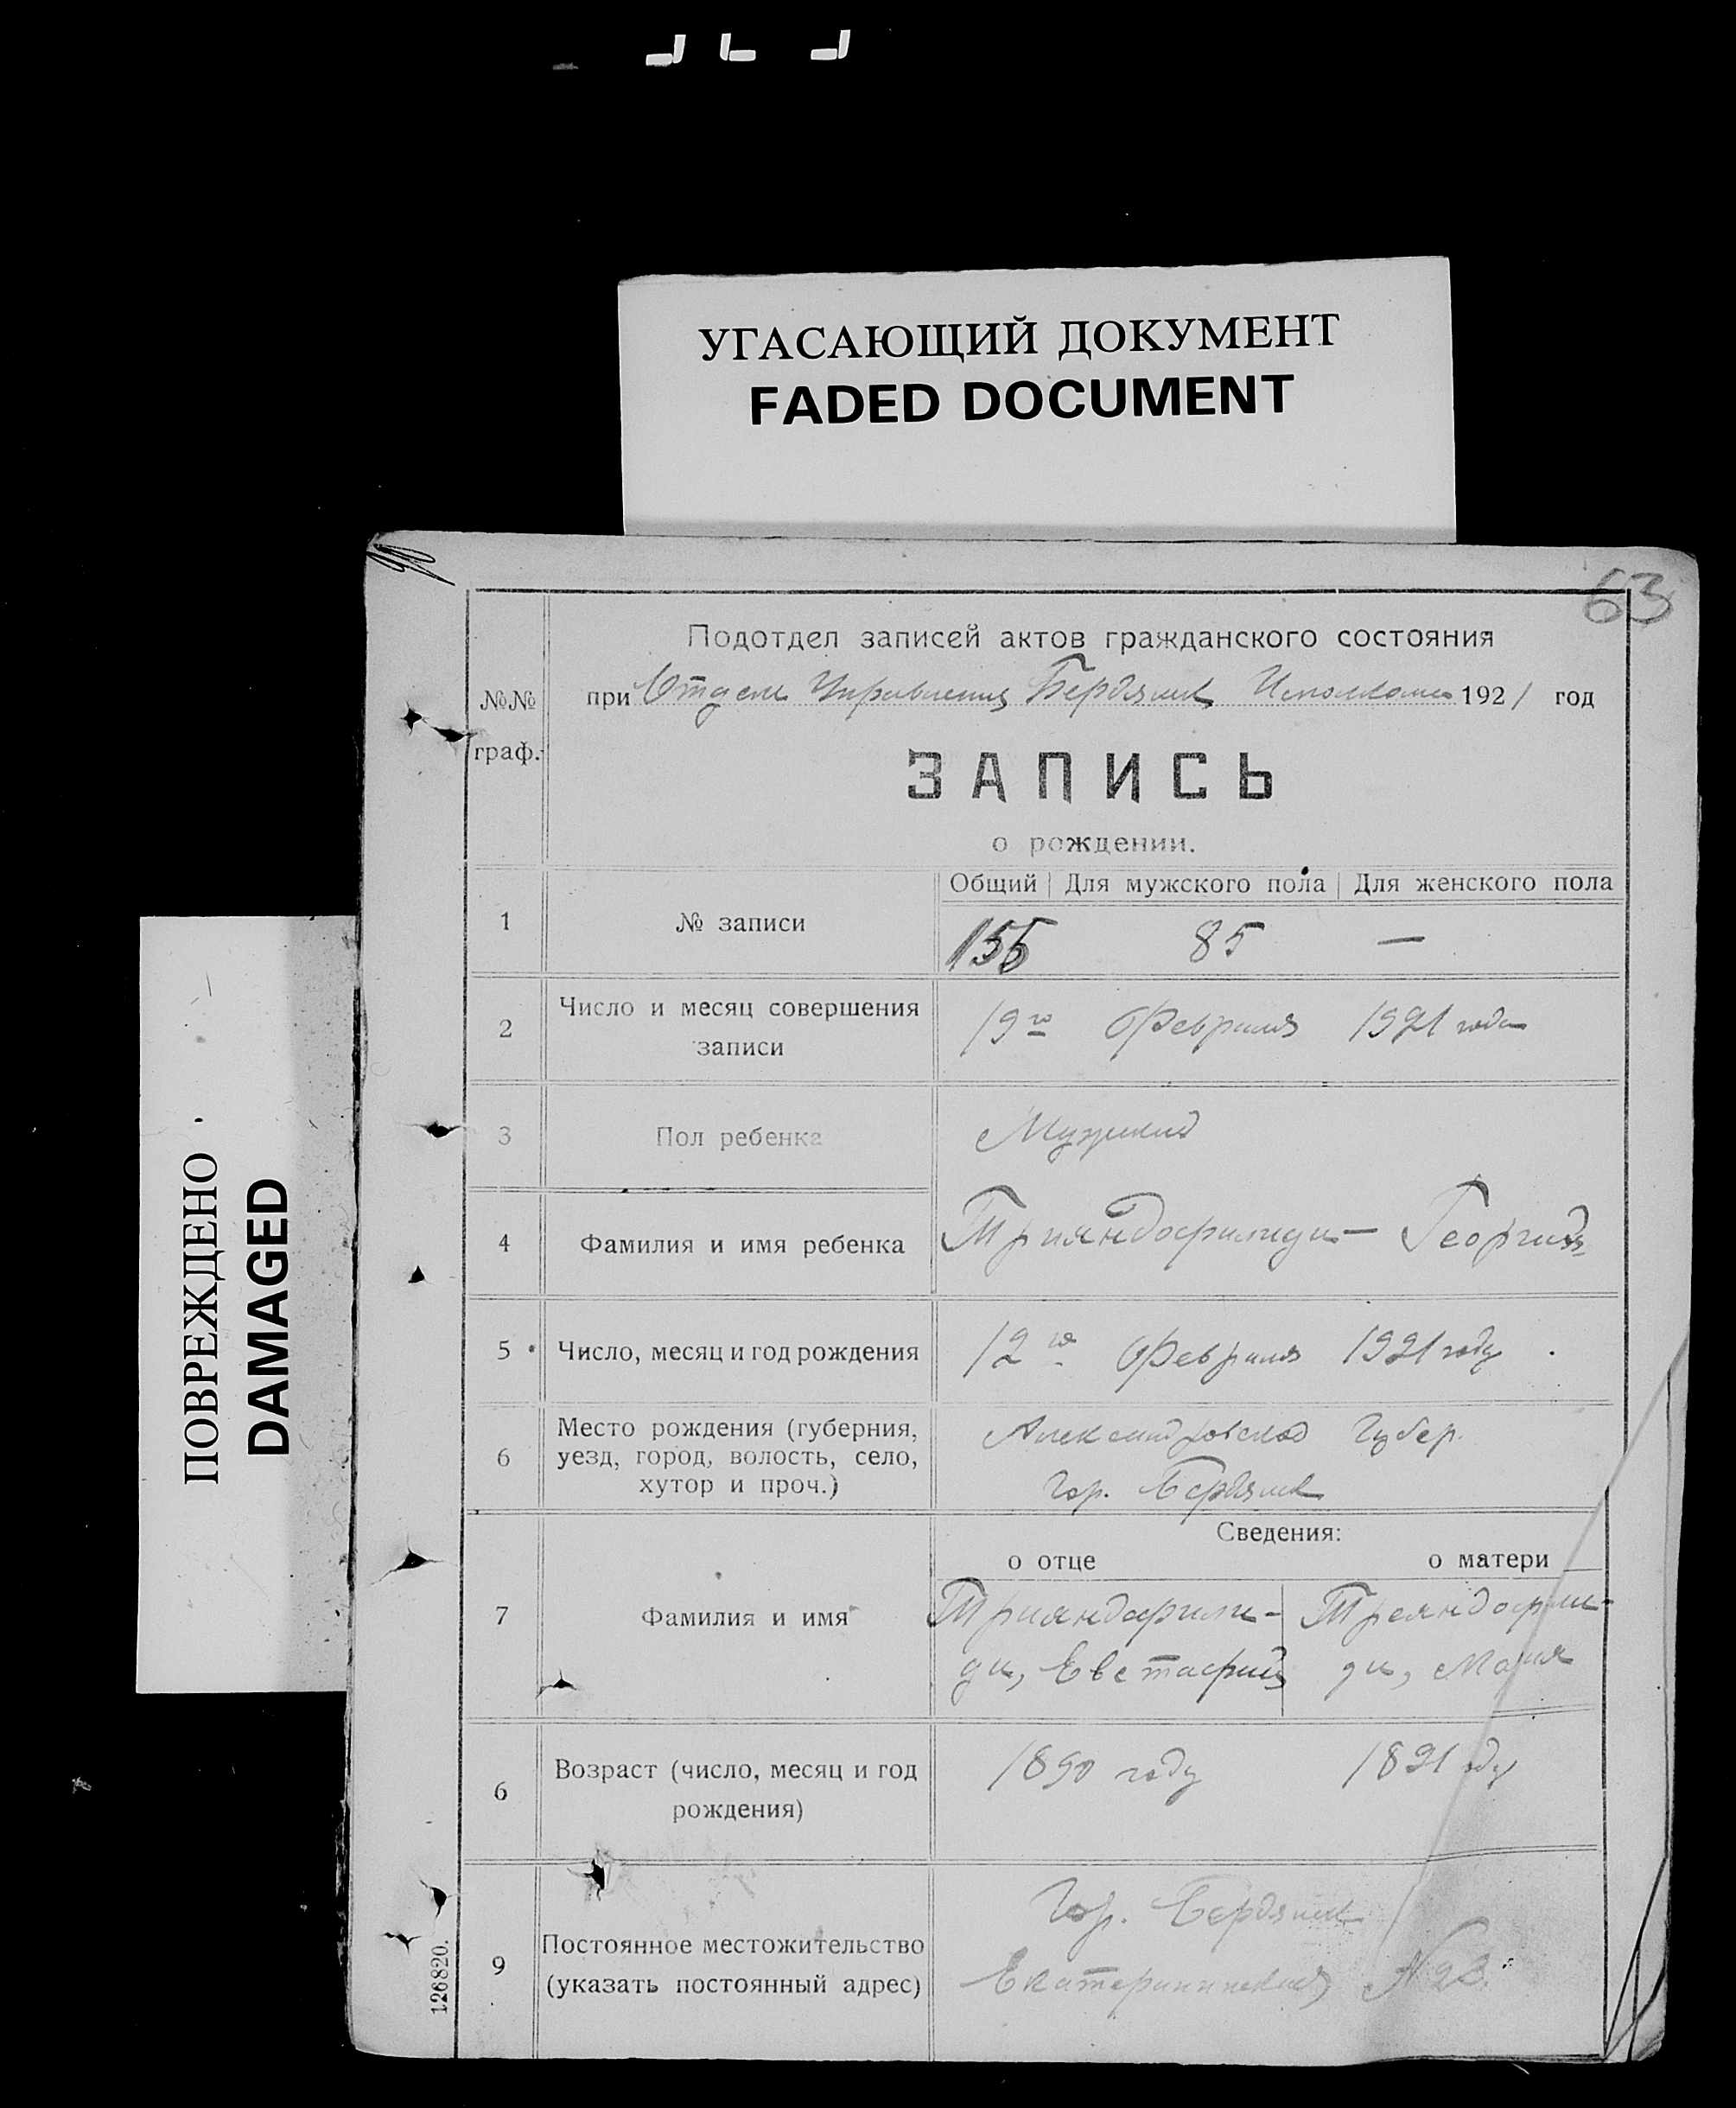 УГАСАЮЩИЙ ДОКУМЕНТ
FADED DOCUMENT
ПОВРЕЖДЕНО
DAMAGED
63
№№ граф.
Подотдел записей актов гражданского состояния
при Отделе Управления Бердянск Исполкома 1921 год
ЗАПИСЬ
о рождении.
Общий Для мужского пола Для женского пола
1 № записи 155 85 —
2 Число и месяц совершения
записи
19го Февраля 1921 года
3 Пол ребенка Мужской
4 Фамилия и имя ребенка Трияндофилиди — Георгий
5 Число, месяц и год рождения 12го Февраля 1921 году
6 Место рождения (губерния,
уезд, город, волость, село,
хутор и проч.)
Александровской Губер.
гор. Бердянск
Сведения:
о отце о матери
7 Фамилия и имя
Трияндафили-
ди, Евстафий
Треяндофили-
ди, Мария
6 Возраст (число, месяц и год
рождения)
1890 году 1891 году
9 Постоянное местожительство
(указать постоянный адрес)
Гор. Бердянск
Екатерининская №23.
126820.